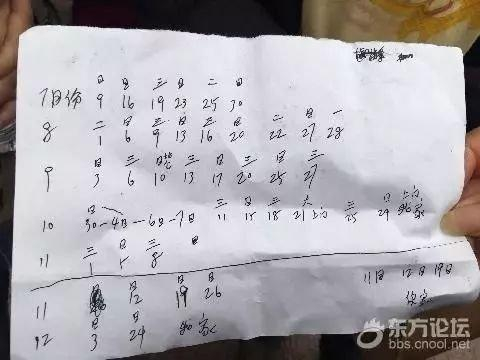 日 日 三 日 二 日
7月份 9 16 19 23 25 30
二 日 三 日 三 日 二 日 一
8 1 6 9 13 16 20 22 27 28
日 三 日 三 日 三 三
9 3 6 10 13 17 20 25 27
日 三 日 三 六 三 日
10 30—4日—6日—7日 11 15 18 21 25 29
三 日 三 日
11 1 5 8
11 12 19 26 11日 12日 19日
12 3 24
东方论坛
bbs.cnool.net